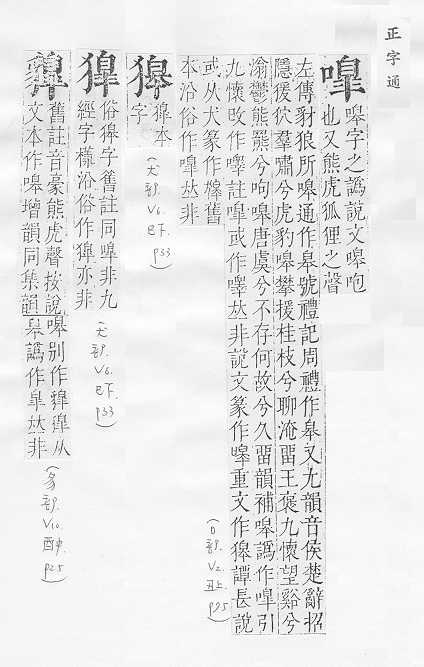 正字通
嘷
嘷字之譌說文嘷咆
也又熊虎狐狸之聲
左傳豺狼所嘷通作皋號禮記周禮作皋又尤韻音侯楚辭招
隱猨狖羣嘯兮虎豹嘷攀援桂枝兮聊淹畱王褒九懷望谿兮
滃鬱熊羆兮呴嘷唐虞兮不存何故兮久畱韻補嘷譌作嘷引
九懷改作嘷註嘷或作嘷𠀤非說文篆作嘷重文作獋譚長說
或从犬篆作獋舊
本㳂俗作嘷𠀤非
(口部. V2. 丑上 p95)
獋
獋本
字
(犬部. V6. 巳下. p33)
俗獋字舊註同嘷非九
經字樣㳂俗作獋亦非
(犬部. V6. 巳下. p33)
舊註音豪熊虎聲按說
文本作嘷增韻同集韻
嘷別作
从
皋譌作𠀤非
(豸部. V10. 酉中. p25)